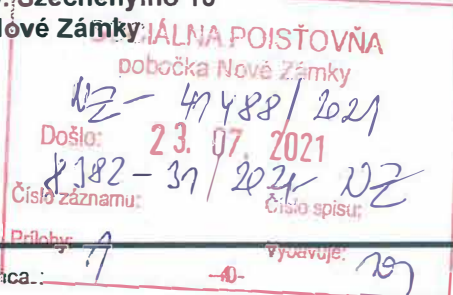 Széchenyiho 10
Nové Zámky
SOCIÁLNA POISŤOVŇA
pobočka Nové Zámky
NZ - 41488/2021
Došlo: 23. 07. 2021
8382-31/2021-NZ
Číslo záznamu: Číslo spisu:
Prílohy: 1 Vybavuje:
-40-